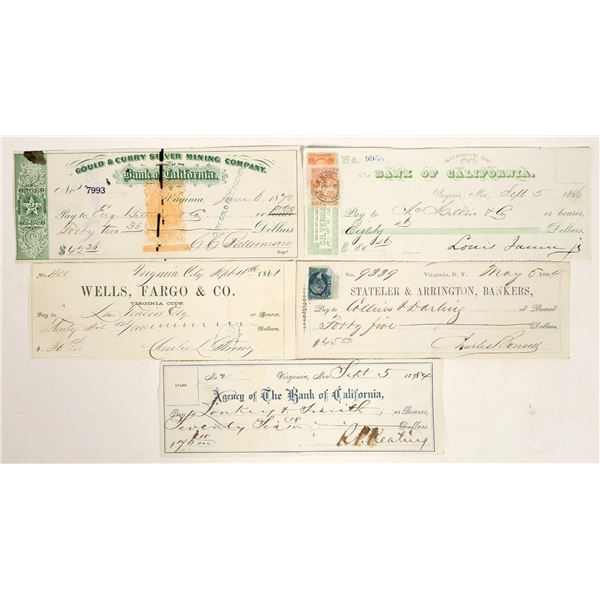 GOULD & CURRY SILVER MINING COMPANY.
Bank of California.
No. 7993
Virginia June 6 1870
Pay to Eug. or order
Forty two 36 Dollars
$42 36
No. 9958
AGENCY OF
The BANK OF CALIFORNIA.
Virginia, Nev. Sept. 5 1866
Pay to or bearer,
Eighty Dollars
$80
Louis Janin jr
No. Virginia City Sept 11th 1861
WELLS, FARGO & CO.
VIRGINIA CITY.
Pay to or Bearer,
Dollars.
$36
Charles L. Strong
No. 9339 Virginia, N. T. May 5 1864
STATELER & ARRINGTON, BANKERS,
Pay to Collins & Darling or Bearer
Forty five Dollars,
$45.00
Charles Bonner
STAMP.
No. 2 Virginia, Nev. Sept 5
Agency of The Bank of California,
Pay to & Smith or Bearer,
Seventy Six Dollars.
$76
R.P. Keating